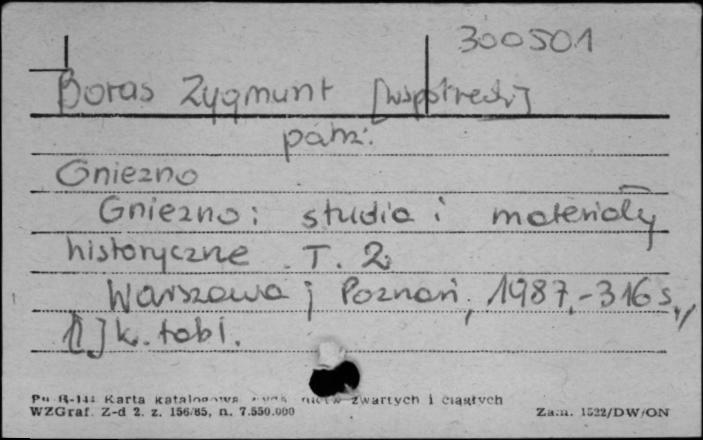 300501
Boras Zygmunt [współred.]
patrz:
Gniezno
Gniezno: studia i materiały
historyczne. T. 2
Warszawa; Poznań, 1987.-316 s.,
[1] k. tabl.
Pu B-144 Karta katalogowa zwartych i ciągłych
WZGraf. Z-d 2. z. 156/85, n. 7.550.000 Zam. 1522/DW/ON